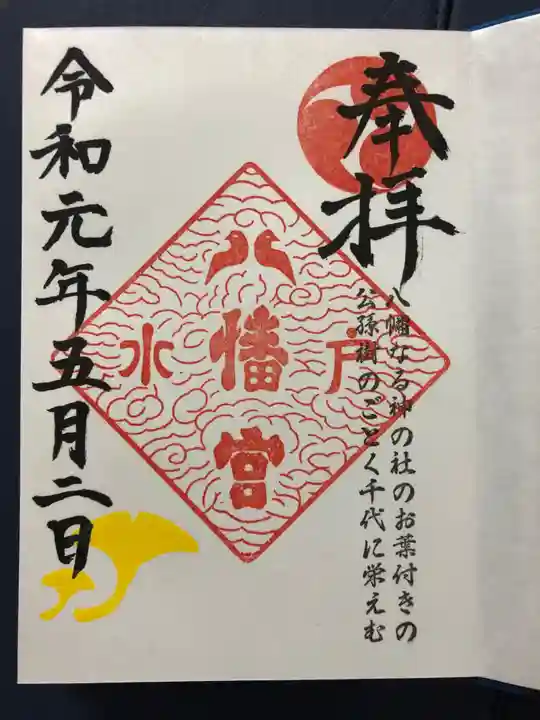 奉拝
八幡なる神の社のお葉付きの
公孫樹のごとく千代に栄えむ
水戸
八幡宮
令和元年五月二日